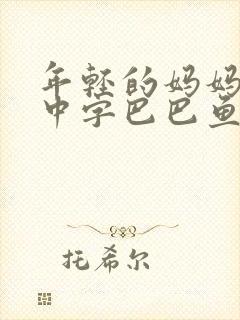 年轻的妈妈
中字巴巴鱼
托希尔